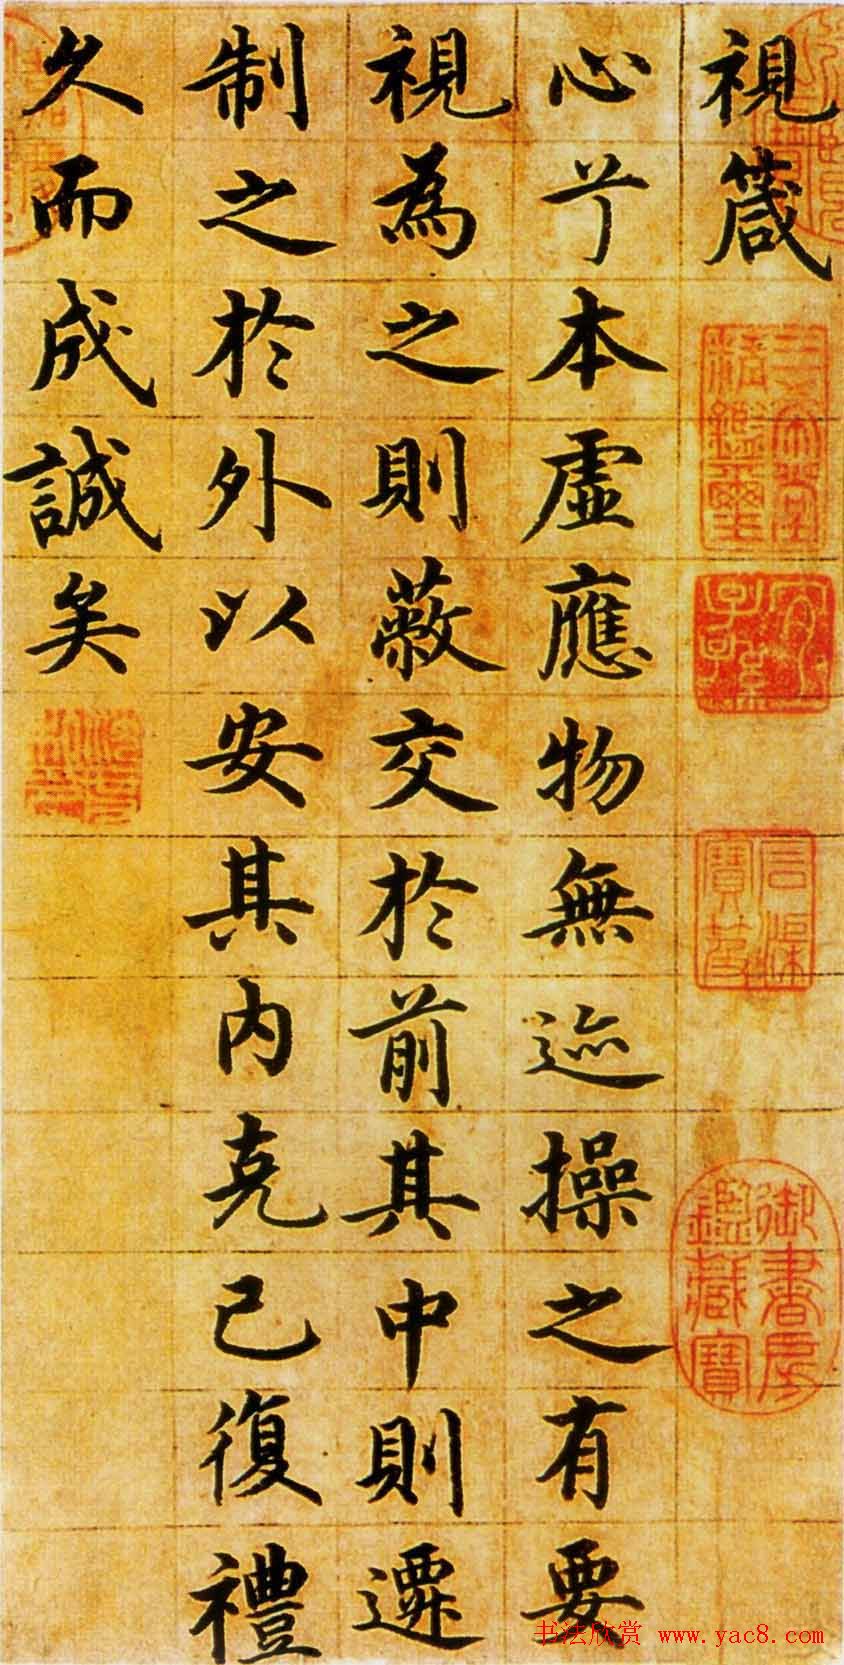 視箴
心兮本虛應物無迹操之有要
視為之則蔽交於前其中則遷
制之於外以安其內克己復禮
久而成誠矣
三希堂精鑑璽
宜子孫
御書房鑑藏寶
书法欣赏 www.yac8.com